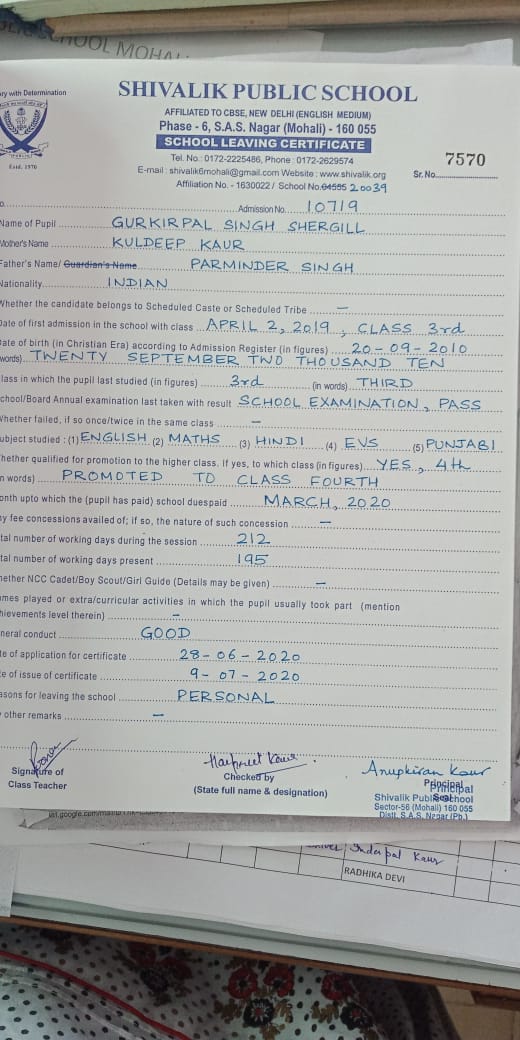 SCHOOL MOHAL
ry with Determination
SHIVALIK PUBLIC SCHOOL
AFFILIATED TO CBSE, NEW DELHI (ENGLISH MEDIUM)
Phase - 6, S.A.S. Nagar (Mohali) - 160 055
SCHOOL LEAVING CERTIFICATE
Estd. 1970
Tel. No.: 0172-2225486, Phone : 0172-2629574
7570
E-mail : shivalik6mohali@gmail.com Website : www.shivalik.org
Sr. No.
Affiliation No. - 1630022 / School No. 04555 20039
o. Admission No. 10719
Name of Pupil GURKIRPAL SINGH SHERGILL
Mother's Name KULDEEP KAUR
Father's Name/ Guardian's Name PARMINDER SINGH
Nationality INDIAN
Whether the candidate belongs to Scheduled Caste or Scheduled Tribe –
Date of first admission in the school with class APRIL 2, 2019, CLASS 3rd
Date of birth (in Christian Era) according to Admission Register (in figures) 20-09-2010
words) TWENTY SEPTEMBER TWO THOUSAND TEN
lass in which the pupil last studied (in figures) 3rd (in words) THIRD
chool/Board Annual examination last taken with result SCHOOL EXAMINATION, PASS
Whether failed, if so once/twice in the same class –
ubject studied : (1) ENGLISH (2) MATHS (3) HINDI (4) EVS (5) PUNJABI
hether qualified for promotion to the higher class. If yes, to which class (in figures) YES, 4th
n words) PROMOTED TO CLASS FOURTH
onth upto which the (pupil has paid) school duespaid MARCH, 2020
ny fee concessions availed of; if so, the nature of such concession –
tal number of working days during the session 212
tal number of working days present 195
hether NCC Cadet/Boy Scout/Girl Guide (Details may be given) –
mes played or extra/curricular activities in which the pupil usually took part (mention
hievements level therein) –
neral conduct GOOD
te of application for certificate 28-06-2020
te of issue of certificate 9-07-2020
asons for leaving the school PERSONAL
other remarks –
Harpreet Kaur
Anupkiran Kaur
Signature of
Class Teacher
Checked by
(State full name & designation)
Principal
Principal
Seal
Shivalik Public School
Sector-56 (Mohali) 160 055
Distt. S.A.S. Nagar (Pb.)
Inderpal Kaur
RADHIKA DEVI